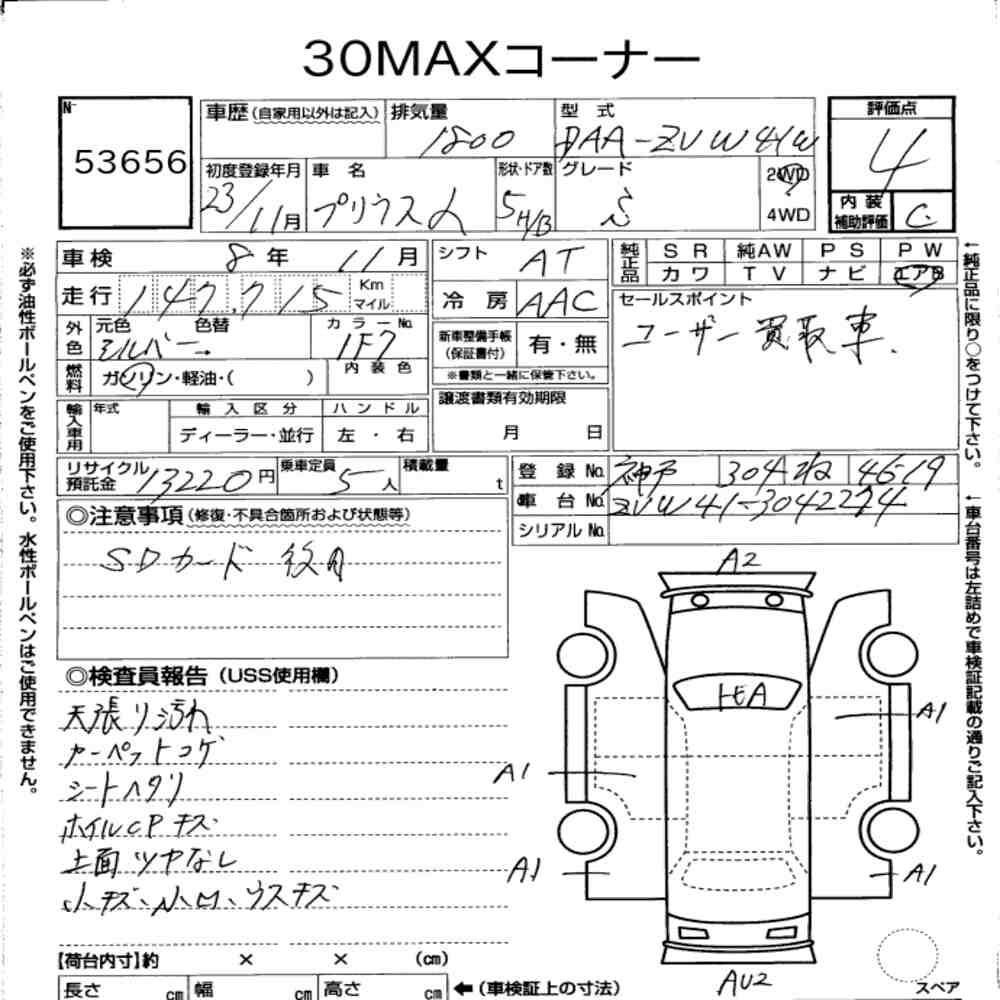 30MAXコーナー
No
53656
車歴(自家用以外は記入)
排気量
1800
型式
DAA-ZVW41W
評価点
4
初度登録年月
23/11月
車名
プリウスα
形状・ドア数
5H/B
グレード
S
2WD
4WD
内装
補助評価
C
車検
8年11月
シフト
AT
純正品
SR 純AW PS PW
カワ TV ナビ エアB
走行
147,715
Km
マイル
冷房
AAC
セールスポイント
ユーザー買取車.
外色
元色
シルバー
色替
→
カラーNo.
1F7
新車整備手帳
(保証書付)
有・無
※書類と一緒に保管下さい。
燃料
ガソリン・軽油・( )
内装色
輸入車用
年式
輸入区分
ディーラー・並行
ハンドル
左・右
譲渡書類有効期限
月 日
リサイクル
預託金
13220円
乗車定員
5人
積載量
t
登録No.
304 ね 4619
車台No.
ZVW41-3042224
シリアルNo.
◎注意事項(修復・不具合箇所および状態等)
SDカード 後日
◎検査員報告(USS使用欄)
天張り汚れ
カーペットコゲ
シートヘタリ
ホイルCPキズ
上面ツヤなし
小キズ、小凹、ウスキズ
A2
A1
A1
A1
A1
AU2
スペア
【荷台内寸】約 × × (cm)
長さ cm 幅 cm 高さ cm ←(車検証上の寸法)
※必ず油性ボールペンをご使用下さい。水性ボールペンはご使用できません。
←純正品に限り○をつけて下さい。
←車台番号は左詰めで車検証記載の通りご記入下さい。